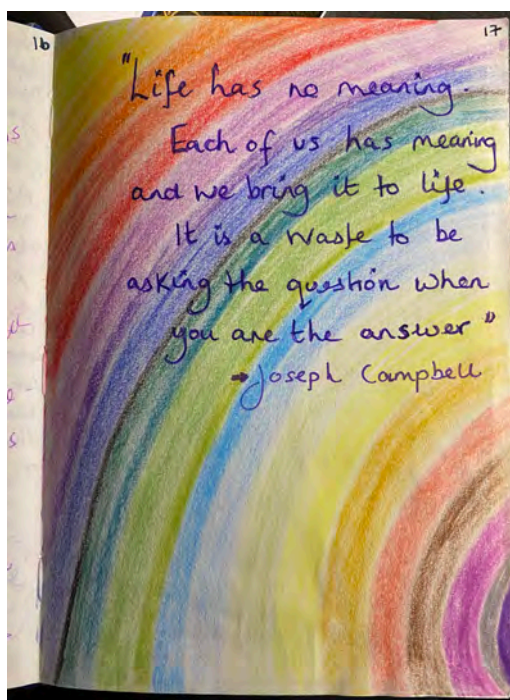 16
17
"Life has no meaning.
Each of us has meaning
and we bring it to life.
It is a waste to be
asking the question when
you are the answer"
→ Joseph Campbell